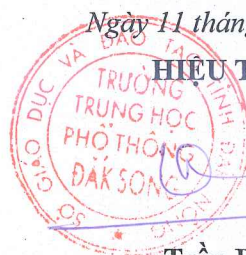 Ngày 11 thán
HIỆU T
SỞ GIÁO DỤC VÀ ĐÀO TẠO TỈNH
TRƯỜNG
TRUNG HỌC
PHỔ THÔNG
ĐĂK SONG